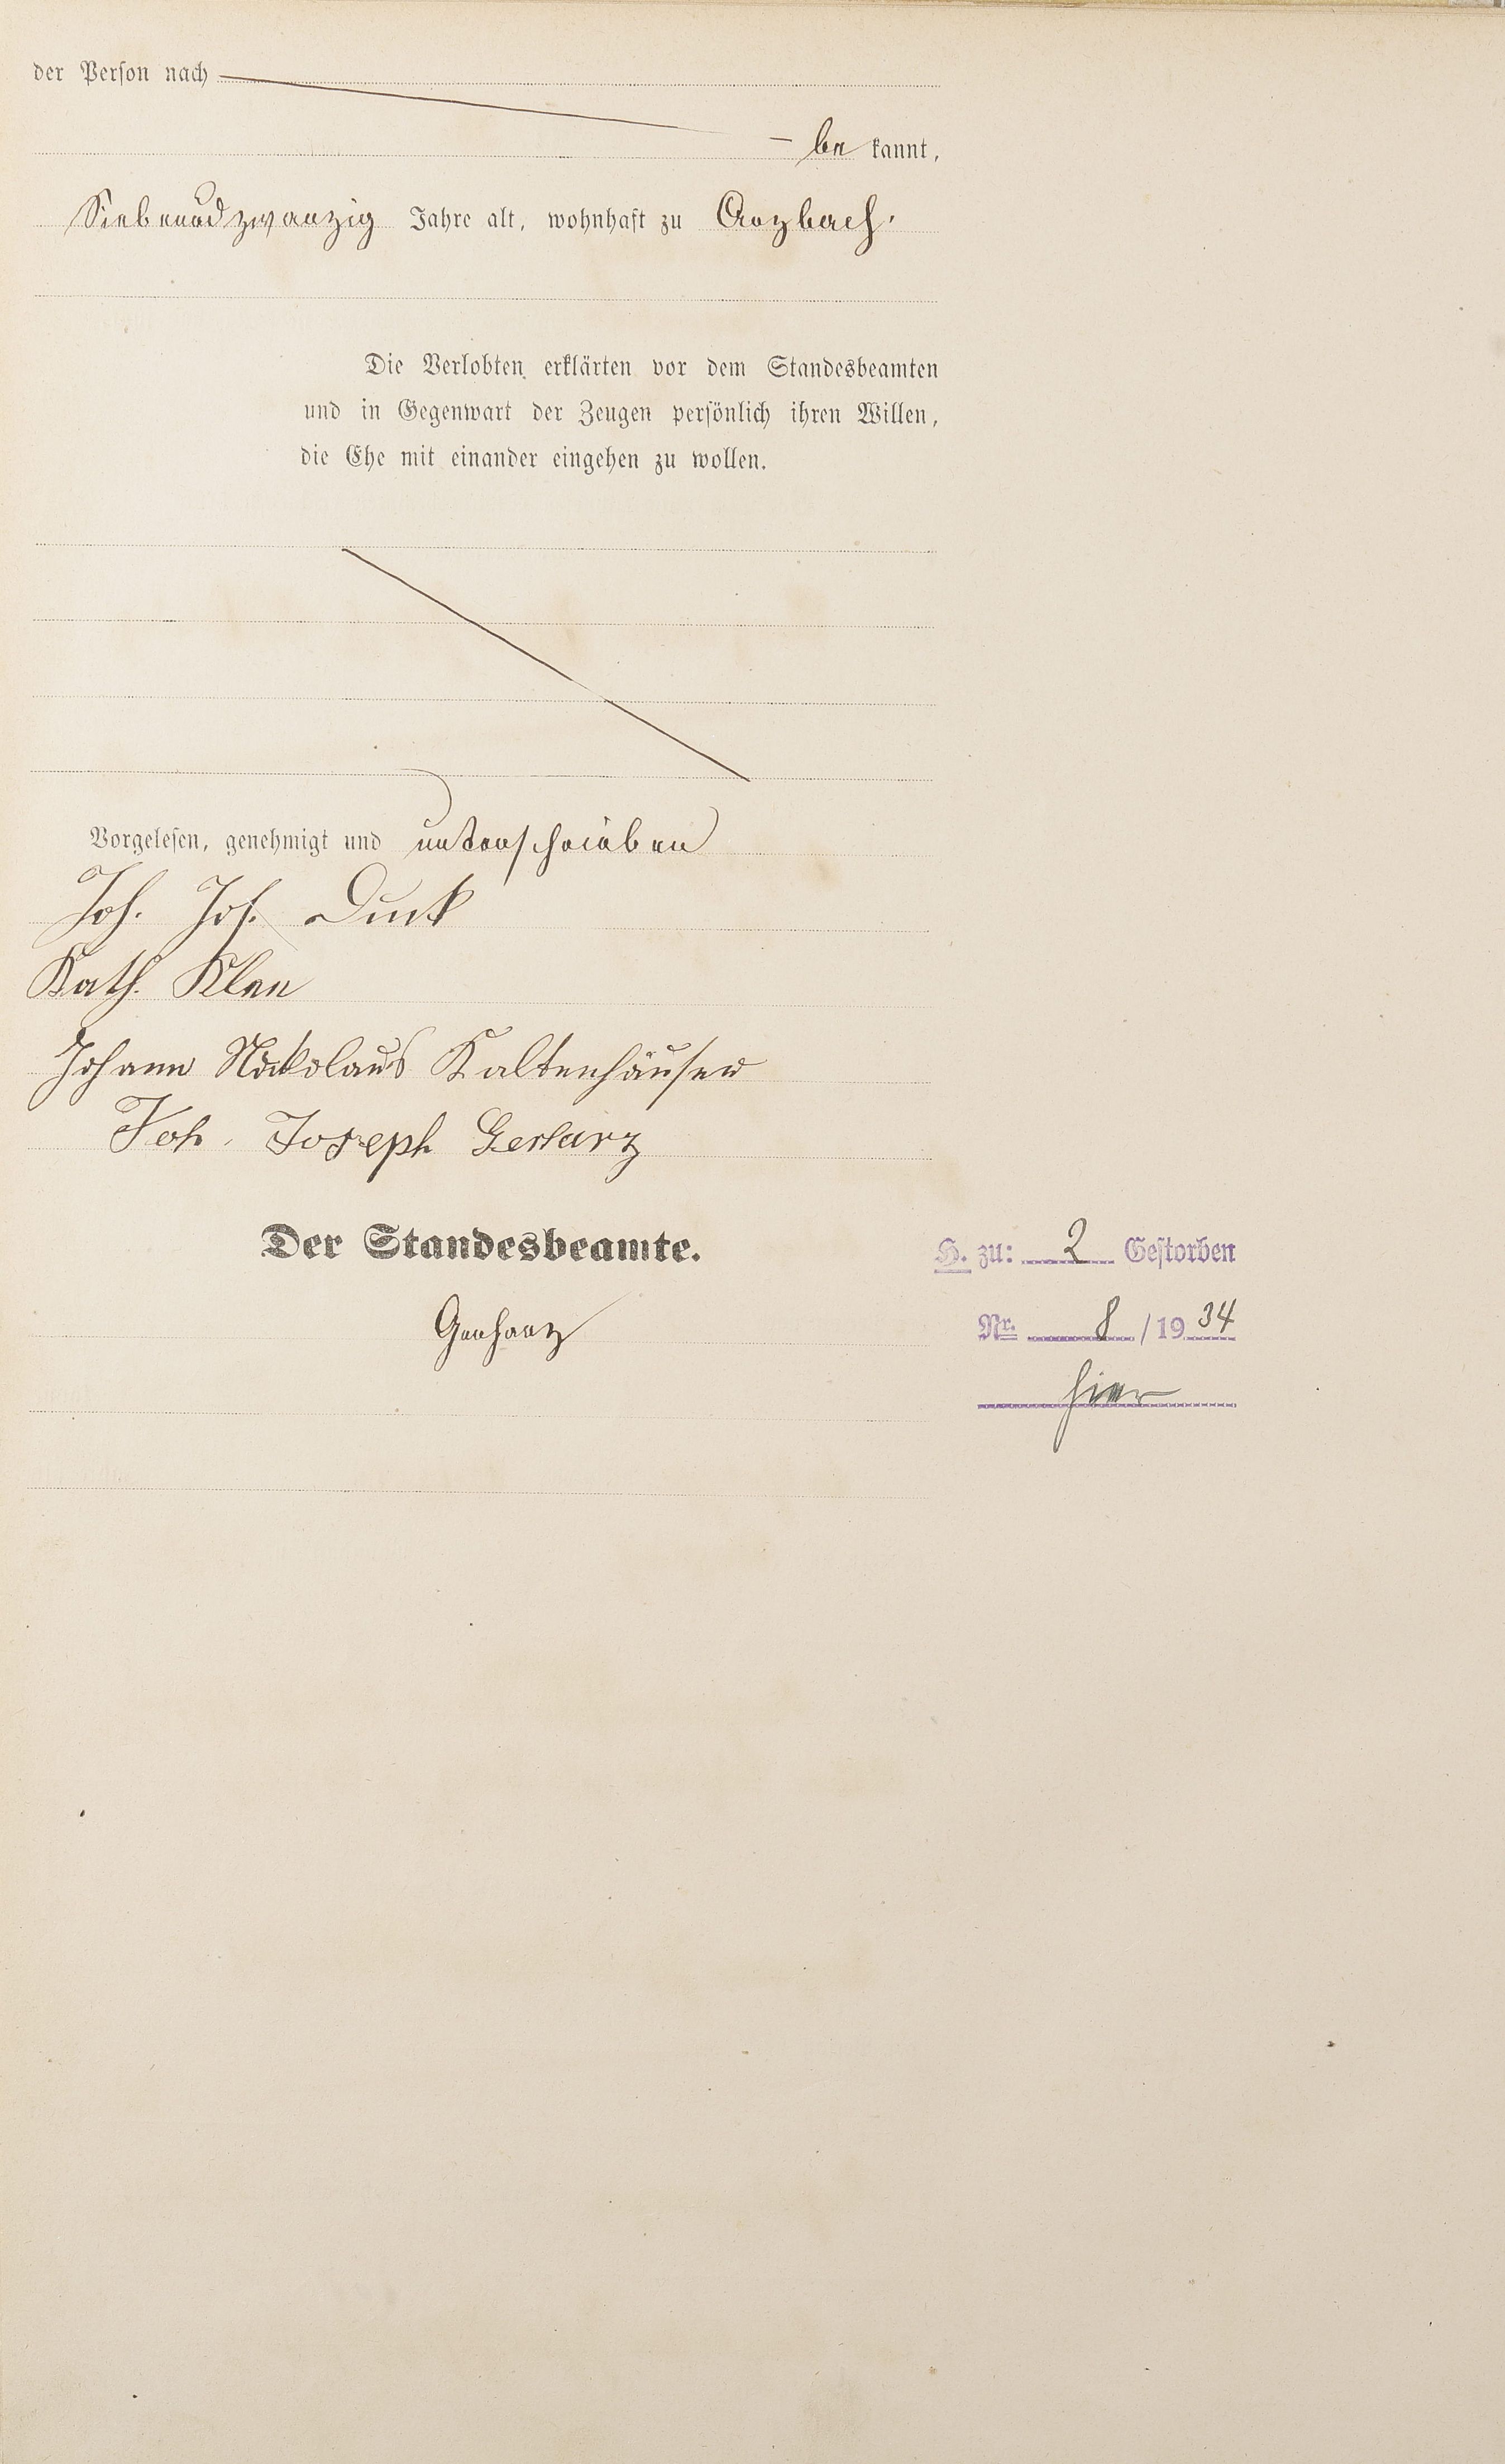 der Person nach
— be kannt,
Siebenundzwanzig Jahre alt, wohnhaft zu Arzbach.
Die Verlobten erklärten vor dem Standesbeamten
und in Gegenwart der Zeugen persönlich ihren Willen,
die Ehe mit einander eingehen zu wollen.
Vorgelesen, genehmigt und unterschrieben
Joh. Jos. Duck
Kath. Klee
Johann Nikolaus Kaltenhäuser
Joh. Joseph Gerharz
Der Standesbeamte.
Gerharz
H. zu: 2 Gestorben
Nr. 8 / 19 34
hier